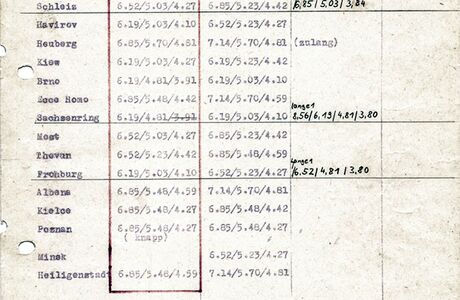 Schleiz 6.52/5.03/4.27 6.85/5.23/4.42 6,85 / 5,03 / 3,84
Havirov 6.19/5.03/4.10 6.52/5.23/4.27
Heuberg 6.85/5.70/4.81 7.14/5.70/4.81 (zulang)
Kiew 6.19/5.03/4.10 6.19/5.23/4.42
Brno 6.19/4.81/3.91 6.19/5.03/4.10
Ecce Homo 6.85/5.48/4.42 7.14/5.70/4.59
Sachsenring 6.19/4.81/3.91 6.19/5.03/4.10 langer 8,56/6,19/4,81/3,80
Most 6.52/5.03/4.27 6.85/5.23/4.42
Thovan 6.52/5.23/4.42 6.85/5.48/4.59
Frohburg 6.19/5.03/4.10 6.52/5.23/4.27 langer 6.52/4,81/3,80
Albena 6.85/5.48/4.59 7.14/5.70/4.81
Kielce 6.85/5.48/4.27 6.85/5.48/4.42
Poznan 6.85/5.48/4.27 6.85/5.48/4.42
( knapp)
Minsk 6.52/5.23/4.27
Heiligenstadt 6.85/5.48/4.59 7.14/5.70/4.81